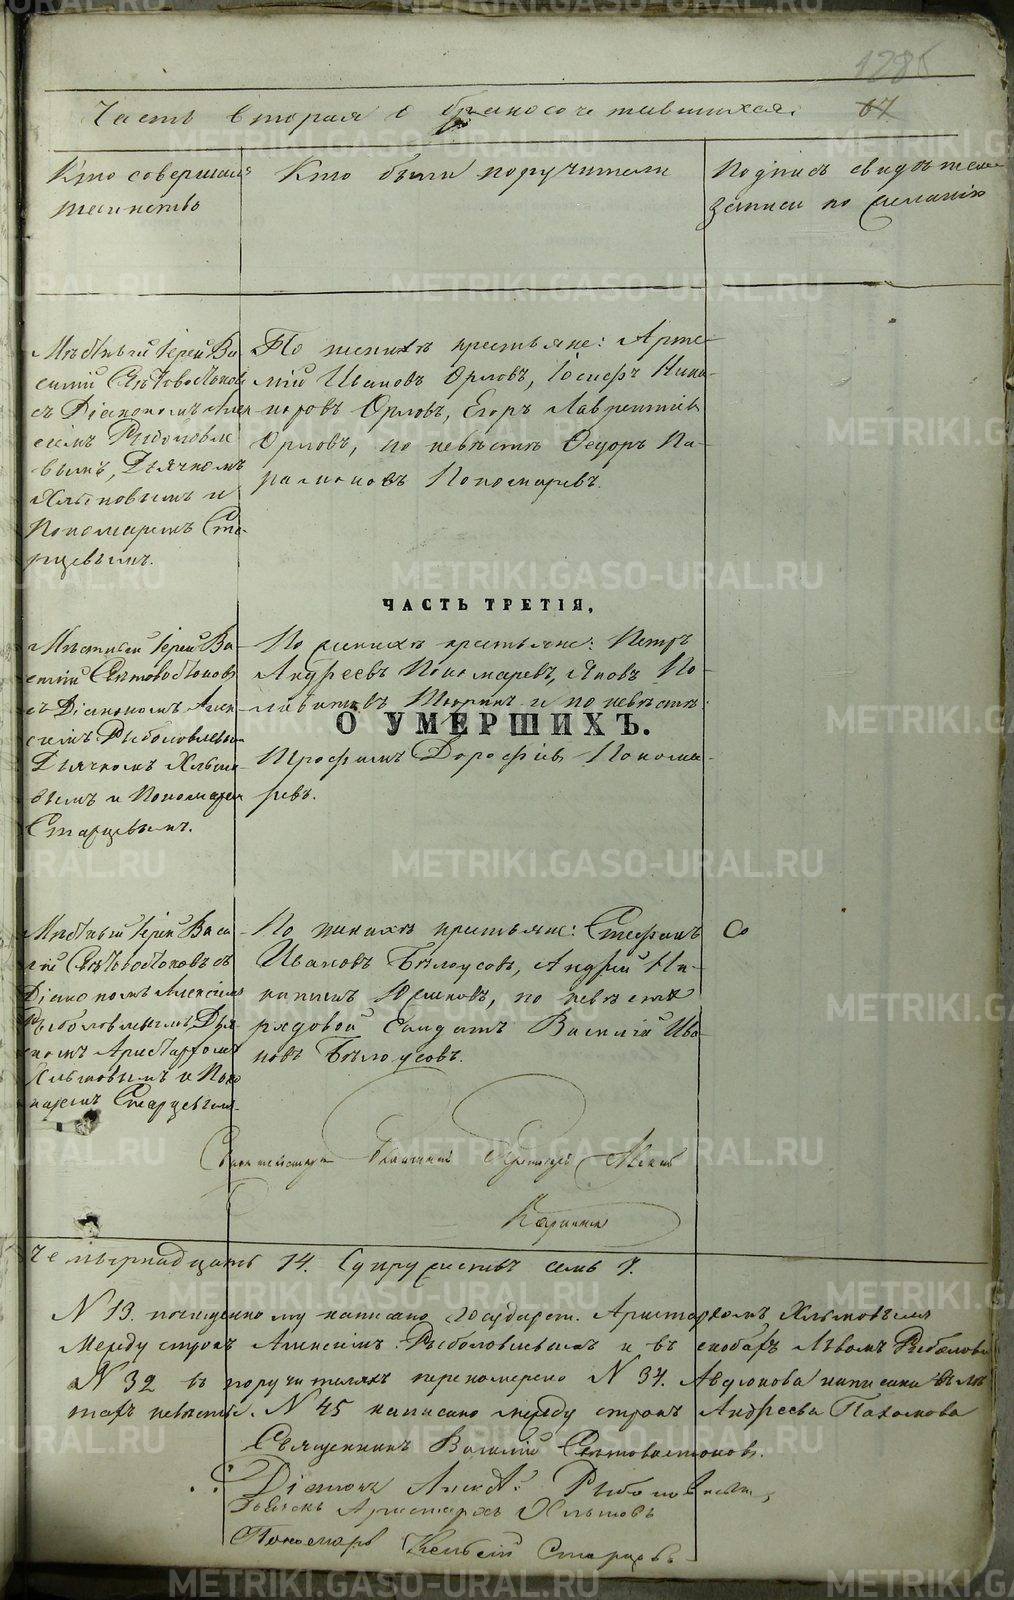 1285
Часть вторая о бракосочетавшихся.
67
Кто совершалъ
таинство
Кто были поручители
Подпись свидѣтелей
записи по желанію
Мѣстный Іерей Ва-
силій Свѣтовостоковъ
съ Діакономъ Алек-
сѣемъ Рыболовле-
вымъ, Дьячкомъ
Хлыновымъ и
Пономаремъ Ста-
рцевымъ.
По женихѣ крестьяне: Арте-
мій Ивановъ Орловъ, Іосифъ Ника-
норовъ Орловъ, Егоръ Лаврентіевъ
Орловъ, по невѣстѣ Ѳедоръ Па-
рамоновъ Пономаревъ.
ЧАСТЬ ТРЕТІЯ,
Мѣстный Іерей Ва-
силій Свѣтовостоковъ
съ Діакономъ Алек-
сѣемъ Рыболовлевымъ
Дьячкомъ Хлыно-
вымъ и Пономаремъ
Старцевымъ.
По женихѣ крестьяне: Петръ
Андреевъ Пономаревъ, Яковъ
и по невѣстѣ
О УМЕРШИХЪ.
Трофимъ Дорофѣевъ Понома-
ревъ.
Мѣстный Іерей Васи-
лій Свѣтовостоковъ съ
Діакономъ Алексѣемъ
Рыболовлевымъ, Дья-
чкомъ Аристархомъ
Хлыновымъ и Поно-
маремъ Старцевымъ.
По женихѣ крестьяне: Стефанъ
Ивановъ Бѣлоусовъ, Андрей Ни-
по невѣстѣ
рядовой Солдатъ Василій Ива-
новъ Бѣлоусовъ.
Со
Четырнадцать 14. Супружествъ семь 7.
N 13. написано Государст. Аристархомъ Хлыновымъ
между строкъ Алексѣемъ Рыболовлевымъ и въ скобахъ Львомъ Рыболовл
N 32 въ поручителяхъ перемарено N 37. написана
невѣсты. N 45 написано между строкъ Андреева Пахомова
Священникъ Василій Свѣтовостоковъ.
Діаконъ Алексѣй Рыболовлевъ,
Дьячекъ Аристархъ Хлыновъ
Пономарь Старцевъ
METRIKI.GASO-URAL.RU